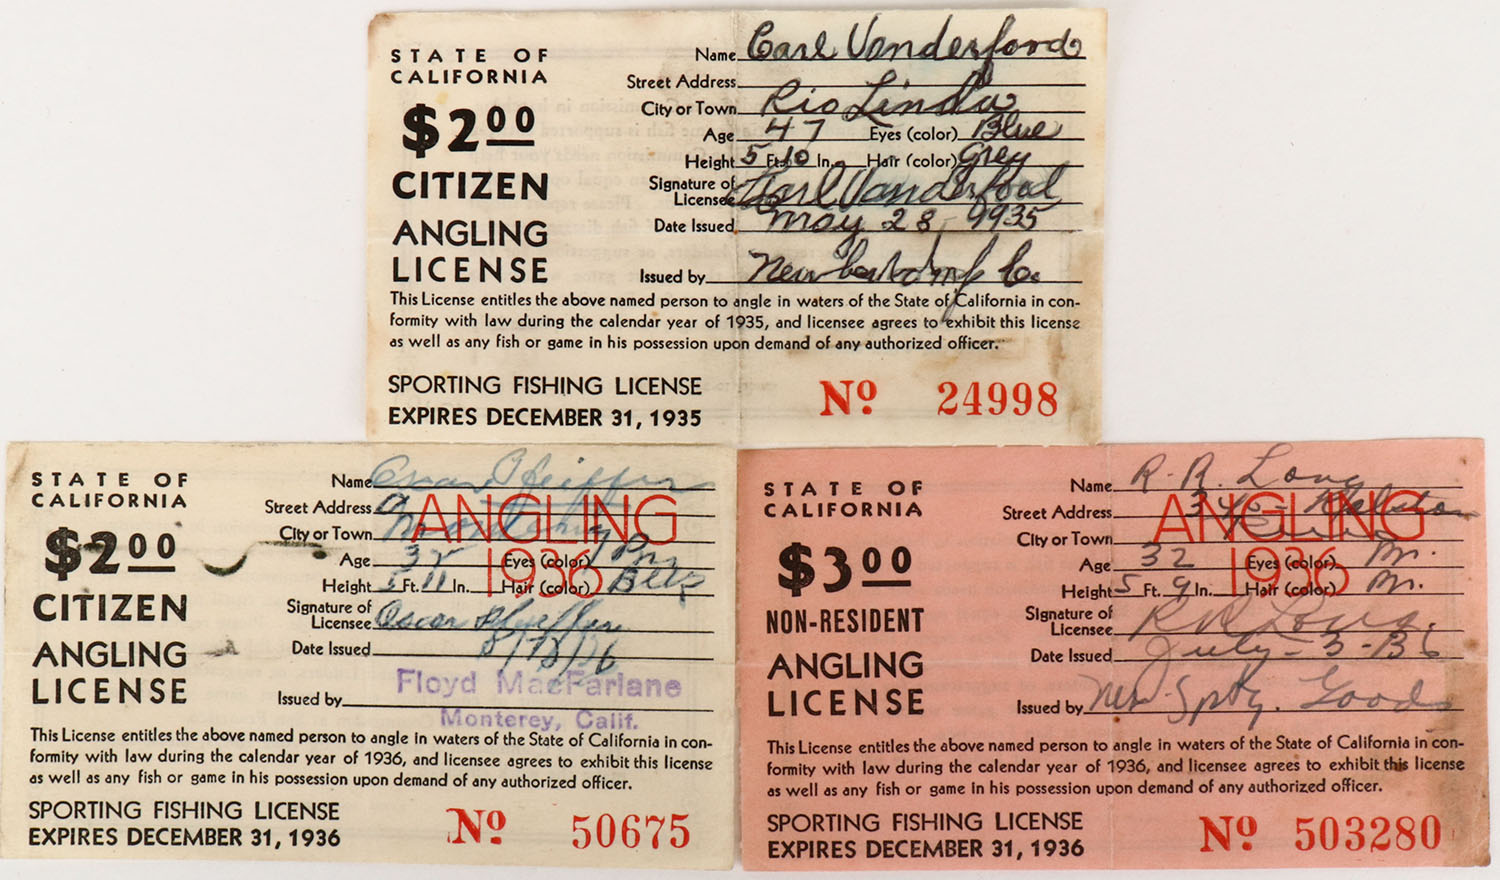 STATE OF
CALIFORNIA
$2.00
CITIZEN
ANGLING
LICENSE
Name Carl Vanderford
Street Address
City or Town Rio Linda
Age 47 Eyes (color) Blue
Height 5 Ft. 10 In. Hair (color) Grey
Signature of
Licensee Karl Vanderfood
Date Issued May 28, 1935
Issued by Co.
This License entitles the above named person to angle in waters of the State of California in con-
formity with law during the calendar year of 1935, and licensee agrees to exhibit this license
as well as any fish or game in his possession upon demand of any authorized officer.
SPORTING FISHING LICENSE
EXPIRES DECEMBER 31, 1935
No 24998
STATE OF
CALIFORNIA
$2.00
CITIZEN
ANGLING
LICENSE
Name Oscar Pfeiffer
Street Address
City or Town
Age 32 Eyes (color)
Height 5 Ft. 11 In. Hair (color)
ANGLING
1936
Signature of
Licensee Oscar Pfeiffer
Date Issued
Issued by
Floyd MacFarlane
Monterey, Calif.
This License entitles the above named person to angle in waters of the State of California in con-
formity with law during the calendar year of 1936, and licensee agrees to exhibit this license
as well as any fish or game in his possession upon demand of any authorized officer.
SPORTING FISHING LICENSE
EXPIRES DECEMBER 31, 1936
No 50675
STATE OF
CALIFORNIA
$3.00
NON-RESIDENT
ANGLING
LICENSE
Name R. R. Long
Street Address
City or Town
Age 32 Eyes (color) Br.
Height 5 Ft. 9 In. Hair (color) Br.
ANGLING
1936
Signature of
Licensee R R Long.
Date Issued July - 3 - 36
Issued by Sptg. Goods
This License entitles the above named person to angle in waters of the State of California in con-
formity with law during the calendar year of 1936, and licensee agrees to exhibit this license
as well as any fish or game in his possession upon demand of any authorized officer.
SPORTING FISHING LICENSE
EXPIRES DECEMBER 31, 1936
No 503280